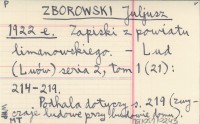 P
F
ZBOROWSKI Juljusz
1922 r. Zapiski z powiatu
limanowskiego. - Lud
(Lwów) seria 2, tom 1 (21):
214-219.
Podhala dotyczy s. 219 (zwy-
czaje ludowe przy budowie domu)
MT